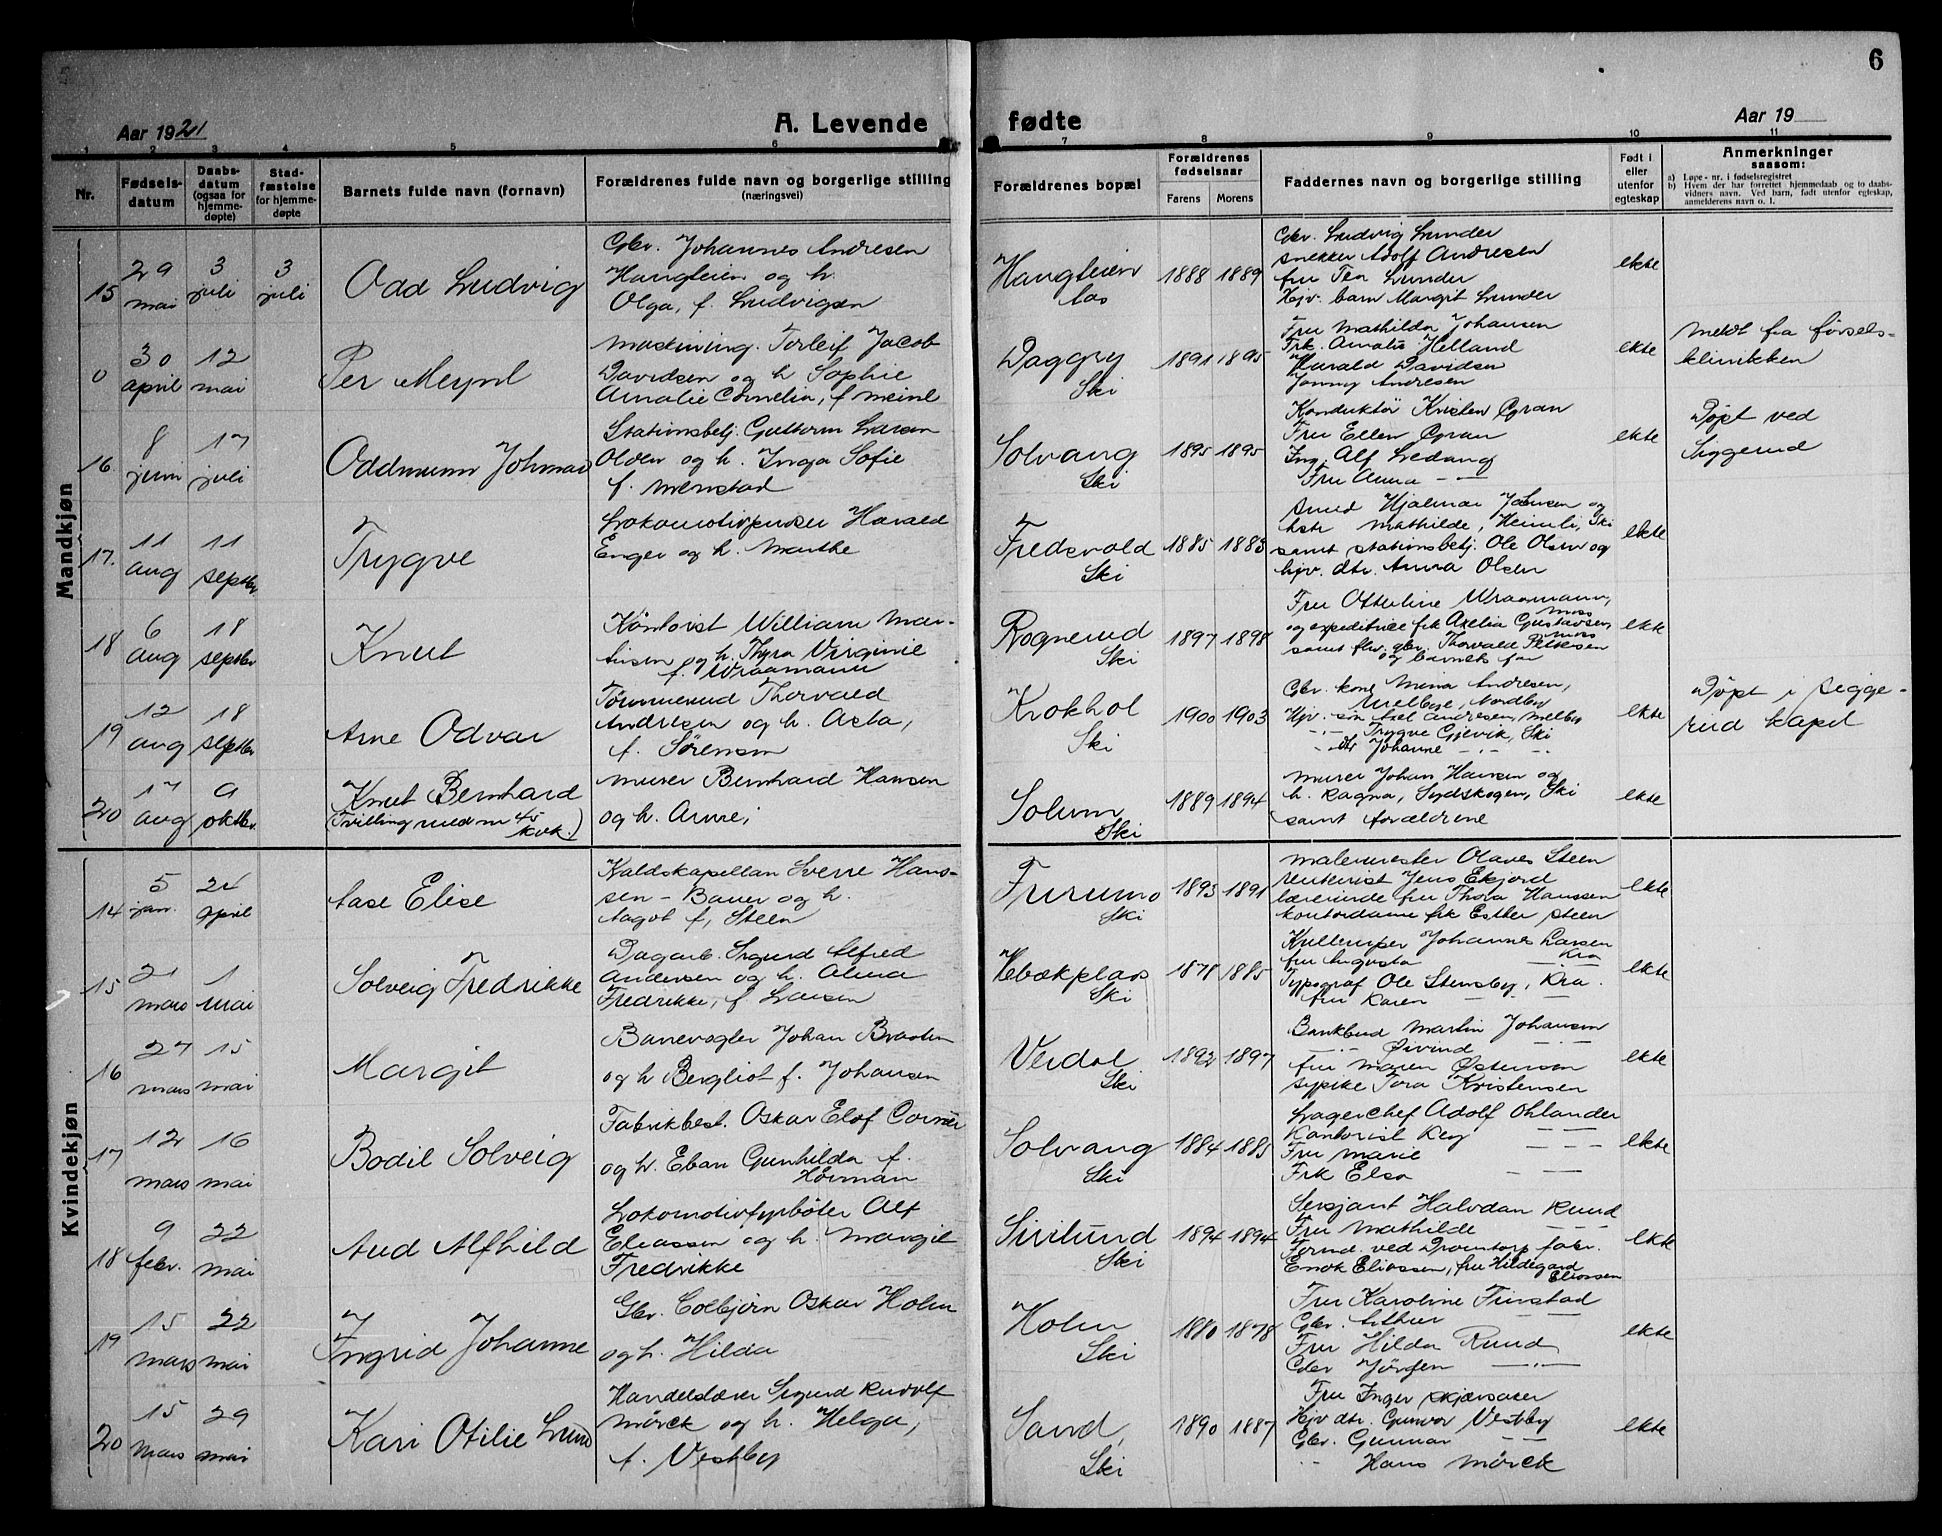 6
Aar 1921
A. Levende
fødte
Aar 19
1 2 3 4 5 6 7 8 9 10 11
Nr.
Fødsels-
datum
Daabs-
datum
(ogsaa for
hjemme-
døpte)
Stad-
fæstelse
for hjemme-
døpte
Barnets fulde navn (fornavn)
Forældrenes fulde navn og borgerlige stilling
(næringsvei)
Forældrenes bopæl
Forældrenes
fødselsaar
Farens Morens
Faddernes navn og borgerlige stilling
Født i
eller
utenfor
egteskap
Anmerkninger
saasom:
a) Løpe-nr. i fødselsregistret
b) Hvem der har forrettet hjemmedaab og to daabs-
vidners navn. Ved barn, født utenfor egteskap,
anmelderens navn o. l.
Mandkjøn
15
29
mai
3
juli
3
juli
Odd Ludvig
Gbr. Johannes Andresen
Haugteien og h.
Olga, f. Ludvigsen
Haugteien
Aas
1888 1889
Gbr. Ludvig Lunder
snekker Adolf Andresen
fru Tea Lunder
Hjv. barn Margit Lunder
ekte
0
30
april
12
mai
Per Meynl
Maskining. Torleif Jacob
Davidsen og h. Sophie
Amalie Cornelia, f. Meinl
Daggry
Ski
1891 1895
Fru Mathilda Johansen
Frk. Amalie Helland
Harald Davidsen
Jonny Andresen
ekte
Meldt fra førsels-
klinikken
16.
8
juni
17
juli
Oddmunn Johmar
Stationsbetj. Guttorm Larsen
Older og h. Inga Sofie
f. Menstad
Solvang
Ski
1895 1895
Konduktør Kristen Gran
Fru Ellen Gran
Ing. Alf Ledang
Fru Anna — —
ekte
Døpt ved
Siggerud
17.
11
aug
11
septbr
Trygve
Lokomotivpudser Harald
Enger og h. Marthe
Fredsvold
Ski
1885 1883
Smed Hjalmar Johnsen og
hstr Mathilde, Heimli, Ski
samt stationsbetj. Ole Olsen og
hjv. dtr. Anna Olsen
ekte
18
6
aug
18
septbr
Knut
Kontorist William Mar-
tinsen og h. Thyra Virginie
f. Wraamann
Rognerud
Ski
1897 1898
Fru Ottteline Wraamann,
Moss
og expeditrice frk Axelia Gustavsen,
Moss
samt gbr. Thorvald Pettersen
og barnets far
ekte
19
12
aug
18
septbr
Arne Odvar
Tømmerud Thorvald
Andresen og h. Asta,
f. Sørensen
Krokhol
Ski
1900 1903
Gbr. kone Mina Andresen,
Melbye, Nordby
Hjv. søn Axel Andresen, Melby
—"— Trygve Gjevik, Ski
" dtr Johanne —"— "
ekte
Døpt i Sigge-
rud kapel
20
17
aug
9
oktbr.
Knut Bernhard
(Tvilling med nr 45
kvk.)
Murer Bernhard Hansen
og h. Anne,
Solum
Ski
1889 1894
Murer Johan Hansen og
h. Ragna, Sydskogen, Ski
samt forældrene
ekte
Kvindekjøn
14
5
jan.
24
april
Aase Elise
Kaldskapellan Sverre Hans-
sen - Bauer og h.
Aagot f. Steen
Furumo
Ski
1893 1891
Malermester Olaves Steen
rentenist Jens Ekjord
lærerinde fru Thora Hanssen
kontordame frk Esther Steen
ekte
15
21
mars
1
mai
Solveig Fredrikke
Dagarb. Sigurd Alfred
Andersen og h. Alma
Fredrikke, f. Larsen
Hebækplads
Ski
1878 1885
Kullemper Johannes Larsen
fru Augusta — Kra
Typograf Ole Stensby, Kra.
fru Karen — — —
ekte
16
27
mars
15
mai
Margit
Banevogter Johan Braaten
og h. Bergliot f. Johansen
Verdal
Ski
1892 1897
Bankbud Martin Johansen
—"— Øivind —"—
fru Maren Østensen
sypike Tora Kristensen
ekte
17
12
mars
16
mai
Bodil Solveig
Fabrikbest. Oskar Elof Cornér
og h. Eban Gunhilda f.
Hörman
Solvang
Ski
1884 1885
Lagerchef Adolf Ohlander
Kontorist Key — —
Fru Marie — — —
Frk Elsa — —
ekte
18
9
febr.
22
mai
Aud Alfhild
Lokomotivfyrbøter Alf
Eliassen og h. Margit
Fredrikke
Sirilund
Ski
1894 1894
Sersjant Halvdan Ruud
Fru Mathilde — — —
Formd. ved Drømtorp fabr.
Enok Eliassen, fru Hildegard
Eliassen
ekte
19
15
mars
22
mai
Ingrid Johanne
Gbr. Colbjørn Oskar Holm
og h. Hilda
Holm
Ski
1880 1878
Fru Karoline Finstad
Gbr. Arthur ——
Fru Hilda Ruud
Gbr Jørgen —"—
ekte
20
15
mars
29
mai
Kari Otilie Lund
Handelslærer Sigurd Rudolf
Mørck og h. Helga,
f. Vestby
Sand,
Ski
1890 1887
Fru Inger Skjærsaker
Hjv dtr. Gunvor Vestby
Gbr. Gunnar — —
" Hans Mørck
ekte